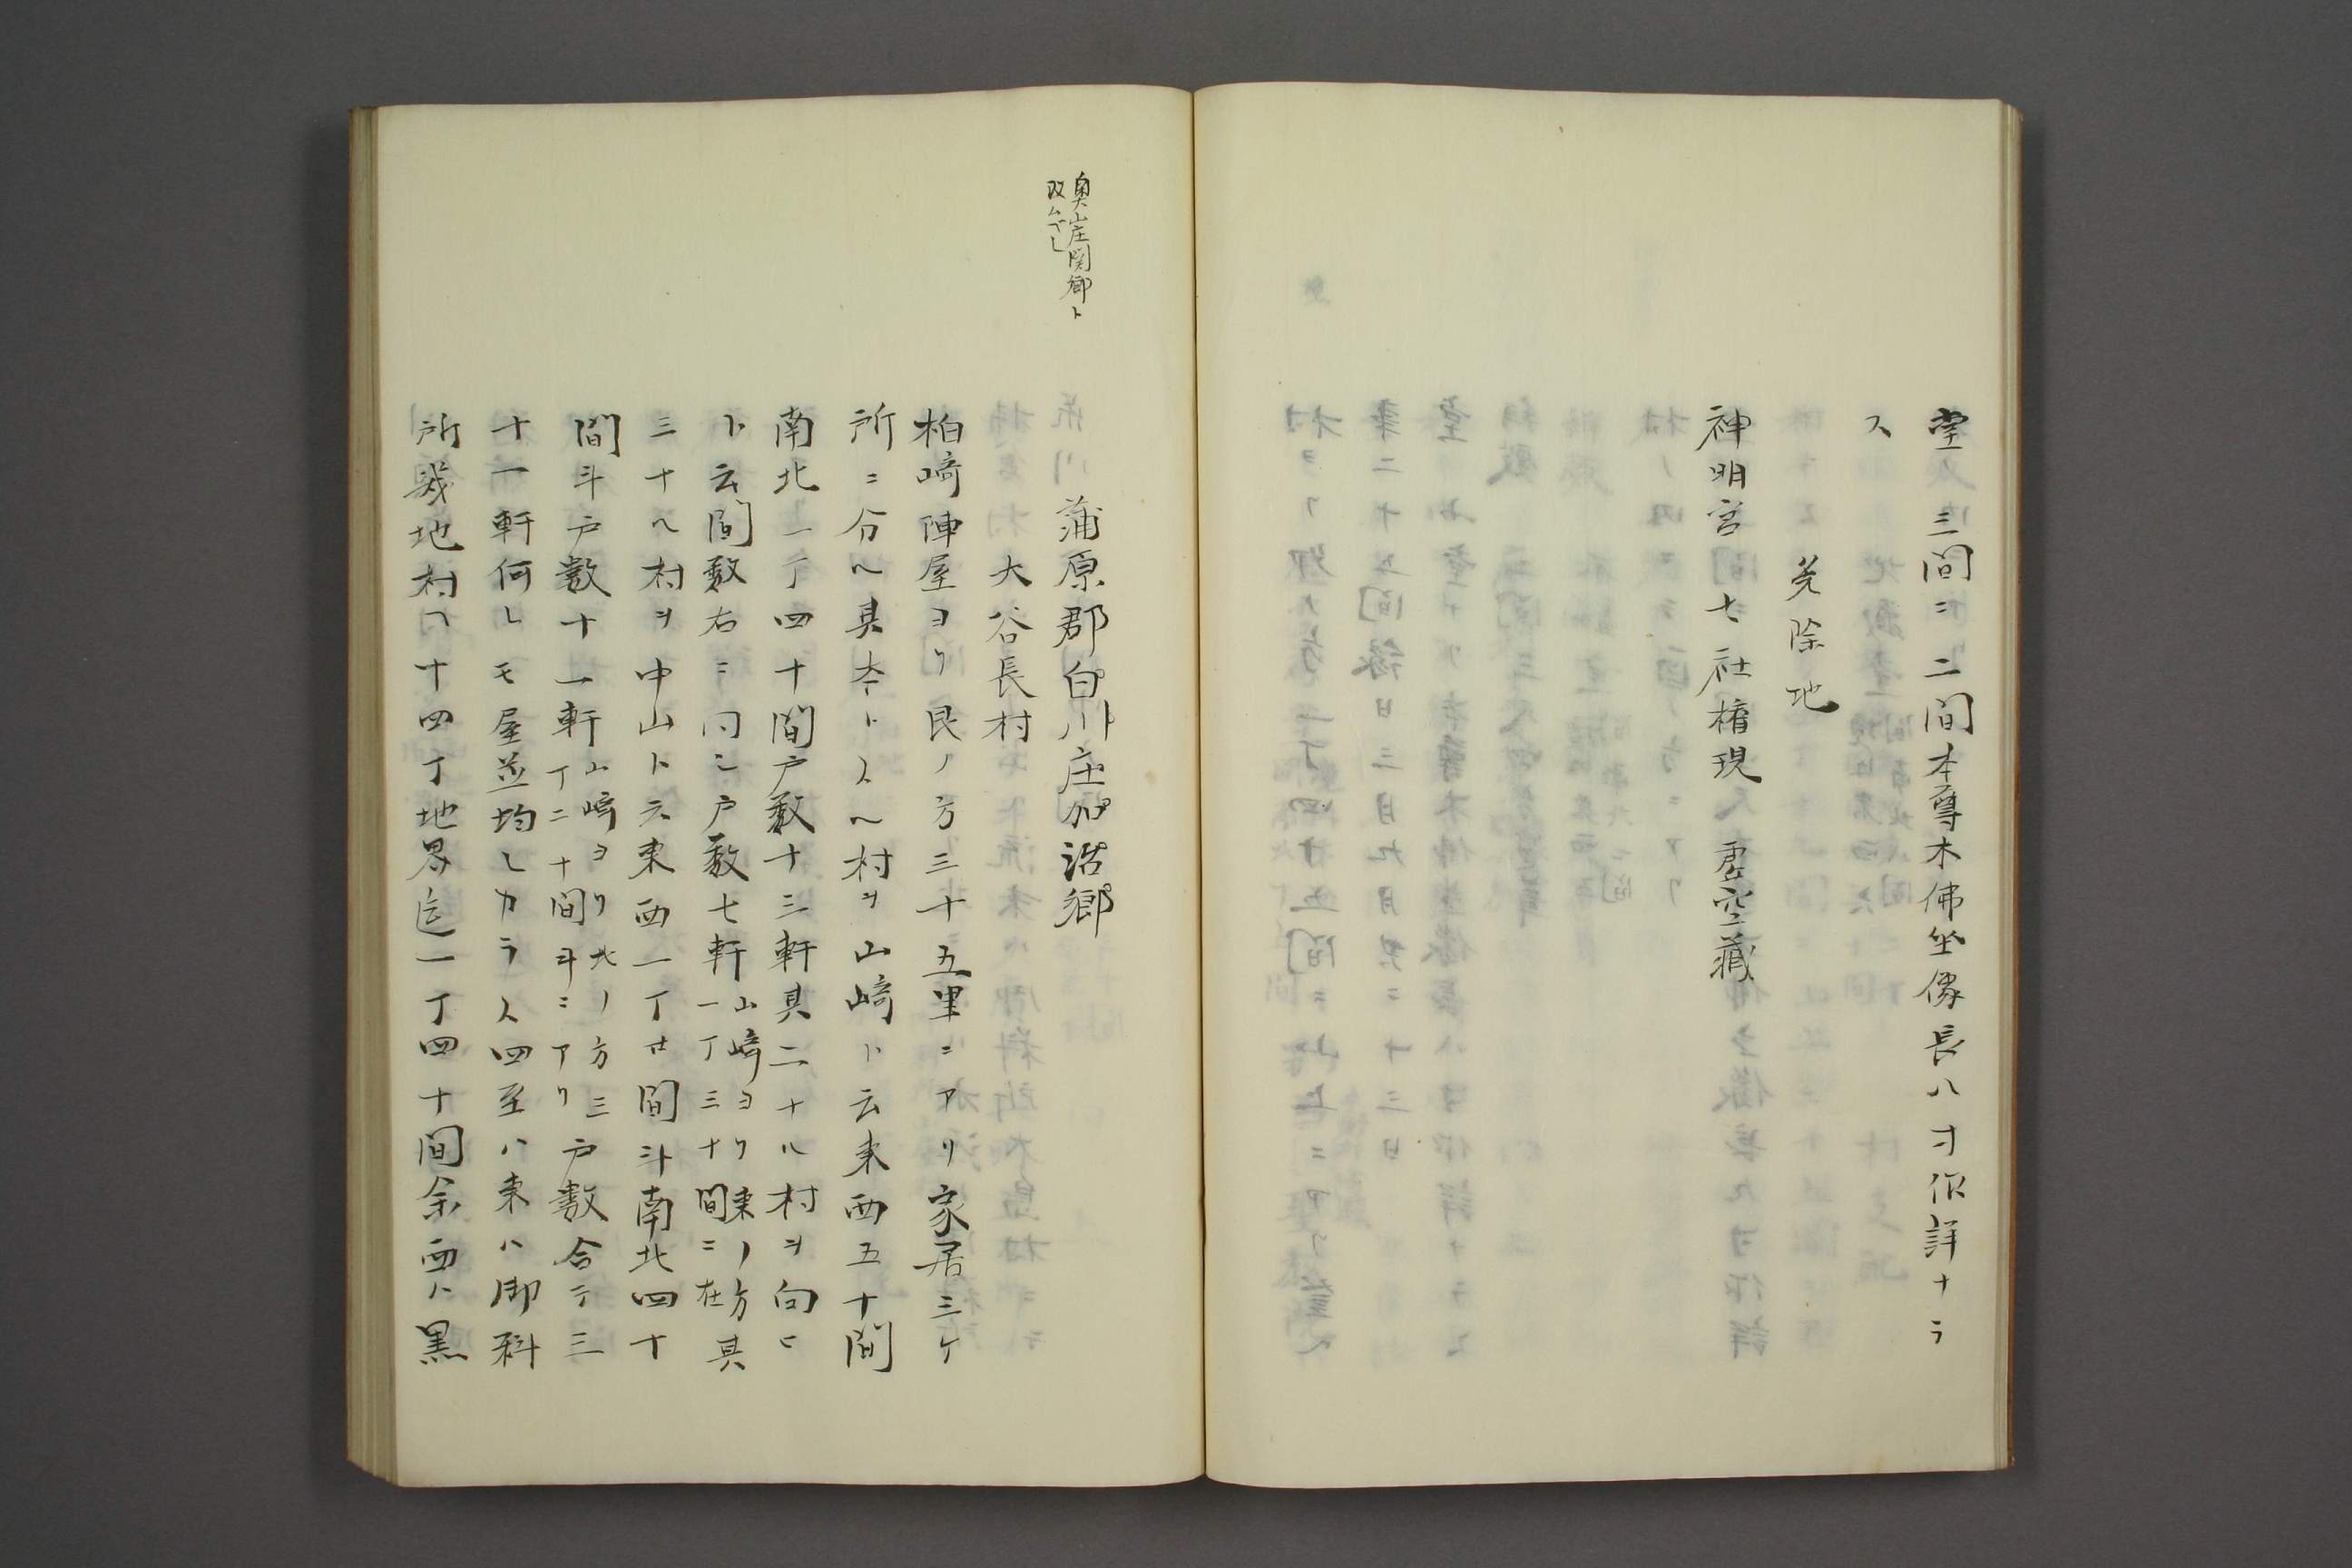 堂三間ニ二間本尊木佛坐像長八寸作詳ナラ
ス
免除地
神明宮七社権現虚空蔵
奥山庄関郷ト
改ムべし
蒲原郡白川庄加治郷
大谷長村
柏﨑陣屋ヨリ艮ノ方三十五里ニアリ家居三ケ
所ニ分ヘ其本トスヘ村ヲ山﨑ト云東西五十間
南北一丁四十間戸数十三軒其二ナル村ヲ向ヒ
ト云間数右ニ同シ戸数七軒
山﨑ヨリ東ノ方
一丁三十間ニ在
其
三ナル村ヲ中山ト云東西一丁廿間斗南北四十
間斗戸数十一軒
山﨑ヨリ北ノ方三
丁二十間斗ニアリ
戸数合テ三
十一軒何レモ屋並均シカラス四至ハ東ハ御料
所幾地村ヘ十四丁地界迄一丁四十間余西ハ黒